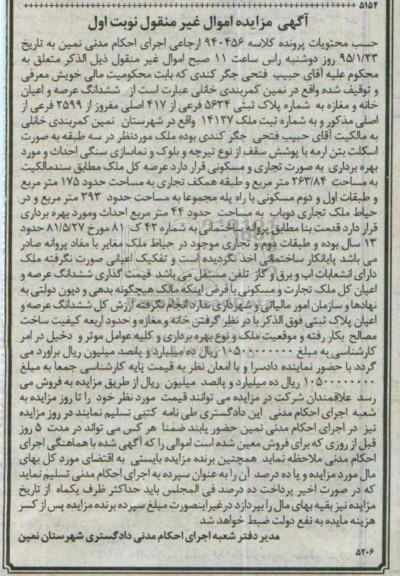 ۵۱۵۴
آگهی مزایده اموال غیر منقول نوبت اول
حسب محتویات پرونده کلاسه ۹۴۰۴۵۶ ارجاعی اجرای احکام مدنی نمین به تاریخ
۹۵/۱/۲۳ روز دوشنبه راس ساعت ۱۱ صبح اموال غیر منقول ذیل الذکر متعلق به
محکوم علیه آقای حبیب فتحی جگر کندی که بابت محکومیت مالی خویش معرفی
و توقیف شده واقع در نمین کمربندی خانلی عبارت است از ششدانگ عرصه و اعیان
خانه و مغازه به شماره پلاک ثبتی ۵۶۳۴ فرعی از ۴۱۷ اصلی مفروز از ۲۵۹۹ فرعی از
اصلی مذکور و به شماره ثبت ملک ۱۴۱۲۷ واقع در شهرستان نمین کمربندی خانلی
به مالکیت آقای حبیب فتحی جگر کندی بوده ملک موردنظر در سه طبقه به صورت
اسکلت بتن ارمه با پوشش سقف از نوع تیرچه و بلوک و نماسازی سنگی احداث و مورد
بهره برداری به صورت تجاری و مسکونی قرار دارد عرصه کل ملک مطابق سندمالکیت
به مساحت ۲۶۳/۸۴ متر مربع و طبقه همکف تجاری به مساحت حدود ۱۷۵ متر مربع
و طبقات اول و دوم مسکونی با راه پله مجموعا به مساحت حدود ۳۹۳ متر مربع و در
حیاط ملک تجاری دوباب به مساحت حدود ۴۴ متر مربع احداث ومورد بهره برداری
قرار دارد قدمت بنا مطابق پروانه ساختمانی به شماره ۴۲ ک ۸۱ مورخ ۸۱/۵/۲۷ حدود
۱۳ سال بوده و طبقات دوم و تجاری موجود در حیاط ملک مغایر با مفاد پروانه صادر
می باشد پایانکار ساختمانی اخذ نگردیده است و تفکیک اعیانی صورت نگرفته ملک
دارای انشعابات اب و برق و گاز تلفن مستقل می باشد قیمت گذاری ششدانگ عرصه و
اعیان کل ملک تجارت و مسکونی با فرض اینکه مالک هیچگونه بدهی و دیون دولتی به
نهادها و سازمان امور مالیاتی و شهرداری ندارد انجام نگرفته ارزش کل ششدانگ عرصه و
اعیان پلاک ثبتی فوق الذکر با در نظر گرفتن خانه و مغازه و حدود اربعه کیفیت ساخت
مصالح بکار رفته و موقعیت ملک و نوع بهره برداری و کلیه عوامل موثر و دخیل در امر
کارشناسی به مبلغ ۱۰۵۰۰۰۰۰۰۰۰ ریال ده میلیارد و پانصد میلیون ریال براورد می
گردد با حضور نماینده دادسرا و با امعان نظر به قیمت پایه کارشناسی جمعا به مبلغ
۱۰۵۰۰۰۰۰۰۰۰ ریال ده میلیارد و پانصد میلیون ریال از طریق مزایده به فروش می
رسد علاقمندان شرکت در مزایده می توانند قیمت مورد نظر خود را تا روز مزایده به
شعبه اجرای احکام مدنی این دادگستری طی نامه کتبی تسلیم نمایند در روز مزایده
نیز در اجرای احکام مدنی نمین حضور یابند ضمنا هر کس می تواند در مدت ۵ روز
قبل از روزی که برای فروش معین شده است اموالی را که آگهی شده با هماهنگی اجرای
احکام مدنی ملاحظه نماید همچنین برنده مزایده بایستی به اقتضای مورد کل بهای
مال مورد مزایده و یا ده درصد آن را به عنوان سپرده به اجرای احکام مدنی تسلیم نماید
که در صورت اخیر پرداخت ده درصد فی المجلس باید حداکثر ظرف یکماه از تاریخ
مزایده نیز بقیه بهای مال را بپردازد درغیراینصورت مبلغ سپرده برنده مزایده پس از کسر
هزینه مزایده به نفع دولت ضبط خواهد شد
مدیر دفتر شعبه اجرای احکام مدنی دادگستری شهرستان نمین
۵۲۰۶